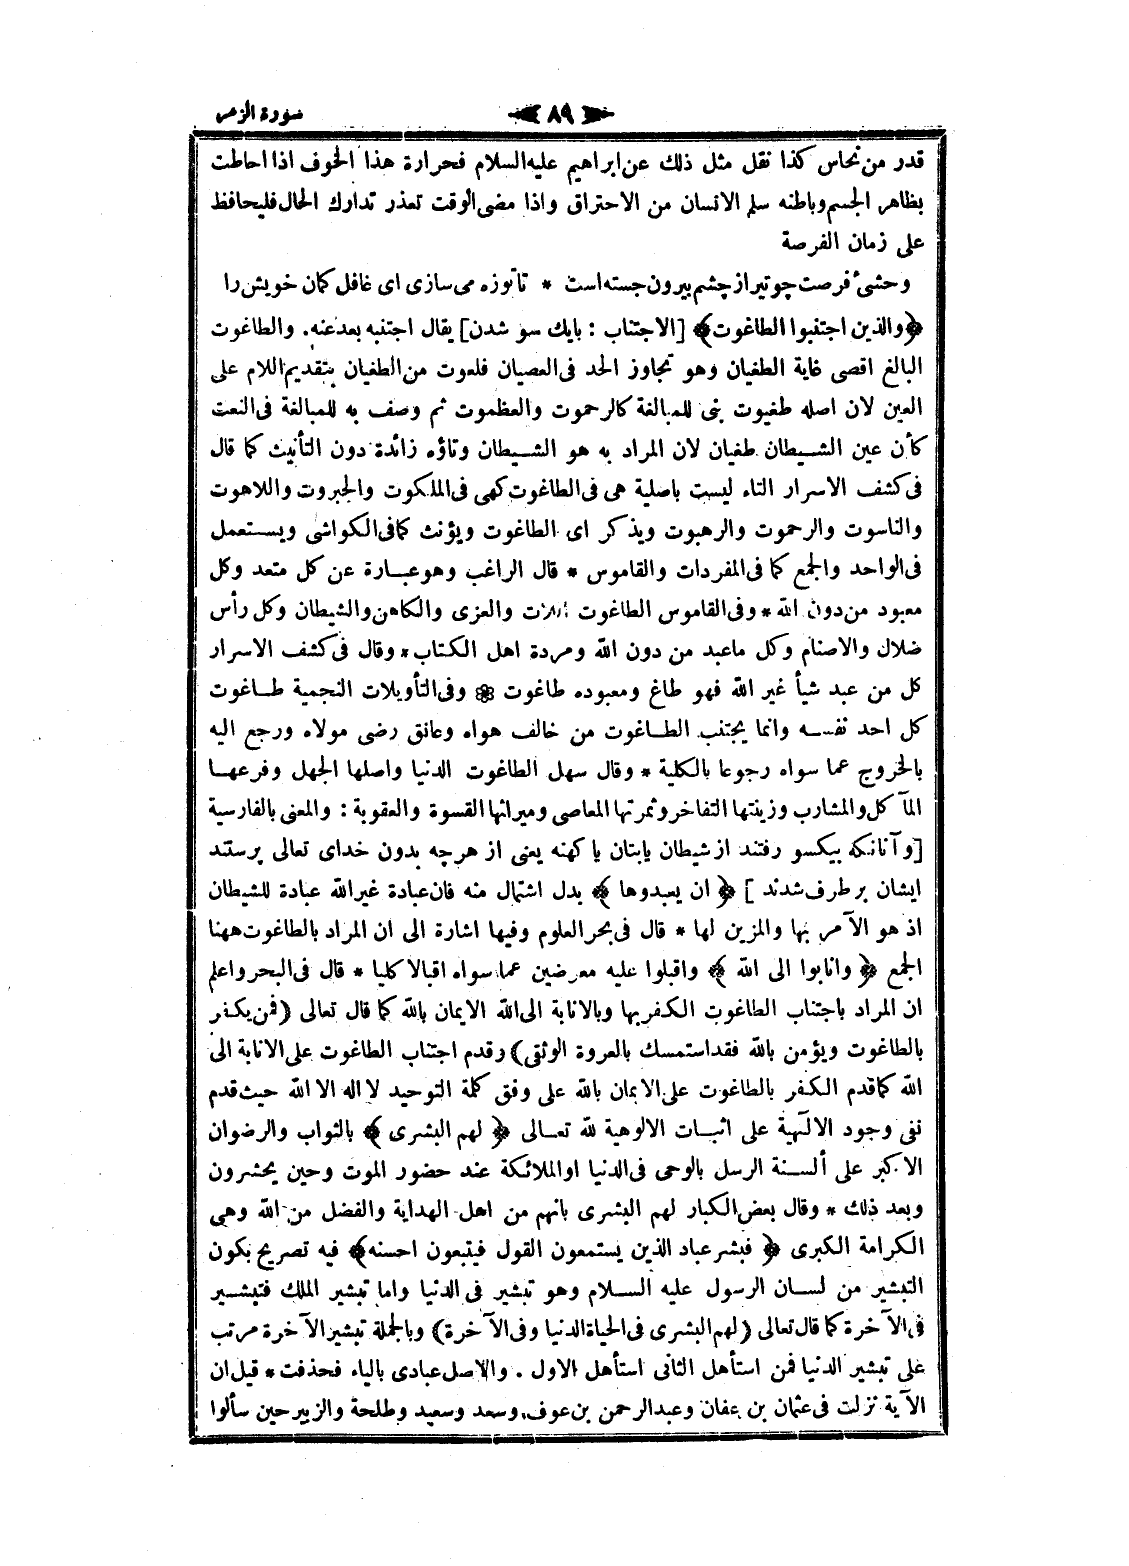 سورة الزمر
٨٩
قدر من نحاس كذا نقل مثل ذلك عن ابراهيم عليه السلام فحرارة هذا الخوف اذا احاطت
بظاهر الجسم وباطنه سلم الانسان من الاحتراق واذا مضى الوقت تعذر تدارك الحال فليحافظ
على زمان الفرصة
وحشئ فرصت چو تير از چشم بيرون جسته است * تا توزه مى سازى اى غافل كمان خويش را
﴿والذين اجتنبوا الطاغوت﴾ [الاجتناب : بايك سو شدن] يقال اجتنبه بعد عنه. والطاغوت
البالغ اقصى غاية الطغيان وهو تجاوز الحد فى العصيان فلعوت من الطغيان بتقديم اللام على
العين لان اصله طغيوت بنى للمبالغة كالرحموت والعظموت ثم وصف به للمبالغة فى النعت
كأن عين الشيطان طغيان لان المراد به هو الشيطان وتاؤه زائدة دون التأنيث كما قال
فى كشف الاسرار التاء ليست باصلية هى فى الطاغوت كهى فى الملكوت والجبروت واللاهوت
والناسوت والرحموت والرهبوت ويذكر اى الطاغوت ويؤنث كما فى الكواشى ويستعمل
فى الواحد والجمع كما فى المفردات والقاموس * قال الراغب وهو عبارة عن كل متعد وكل
معبود من دون الله * وفى القاموس الطاغوت اللات والعزى والكاهن والشيطان وكل رأس
ضلال والاصنام وكل ما عبد من دون الله ومردة اهل الكتاب * وقال فى كشف الاسرار
كل من عبد شيأ غير الله فهو طاغ ومعبوده طاغوت ❁ وفى التأويلات النجمية طاغوت
كل احد نفسه وانما يجتنب الطاغوت من خالف هواه وعانق رضى مولاه ورجع اليه
بالخروج عما سواه رجوعا بالكلية * وقال سهل الطاغوت الدنيا واصلها الجهل وفرعها
المآكل والمشارب وزينتها التفاخر وثمرتها المعاصى وميراثها القسوة والعقوبة : والمعنى بالفارسية
[وآنانكه بيكسو رفتند از شيطان يا بتان يا كهنه يعنى از هرچه بدون خداى تعالى پرستند
ايشان بر طرف شدند ] ﴿ ان يعبدوها ﴾ بدل اشتمال منه فان عبادة غير الله عبادة للشيطان
اذ هو الآمر بها والمزين لها * قال فى بحر العلوم وفيها اشارة الى ان المراد بالطاغوت ههنا
الجمع ﴿ وانابوا الى الله ﴾ واقبلوا عليه معرضين عما سواه اقبالا كليا * قال فى البحر واعلم
ان المراد باجتناب الطاغوت الكفر بها وبالانابة الى الله الايمان بالله كما قال تعالى (فمن يكفر
بالطاغوت ويؤمن بالله فقد استمسك بالعروة الوثقى) وقدم اجتناب الطاغوت على الانابة الى
الله كما قدم الكفر بالطاغوت على الايمان بالله على وفق كلمة التوحيد لا اله الا الله حيث قدم
نفى وجود الالهية على اثبات الالوهية لله تعالى ﴿ لهم البشرى ﴾ بالثواب والرضوان
الاكبر على ألسنة الرسل بالوحى فى الدنيا او الملائكة عند حضور الموت وحين يحشرون
وبعد ذلك * وقال بعض الكبار لهم البشرى بانهم من اهل الهداية والفضل من الله وهى
الكرامة الكبرى ﴿ فبشر عباد الذين يستمعون القول فيتبعون احسنه﴾ فيه تصريح بكون
التبشير من لسان الرسول عليه السلام وهو تبشير فى الدنيا واما تبشير الملك فتبشير
فى الآخرة كما قال تعالى (لهم البشرى فى الحياة الدنيا وفى الآخرة) وبالجملة تبشير الآخرة مرتب
على تبشير الدنيا فمن استأهل الثانى استأهل الاول . والاصل عبادى بالياء فحذفت * قيل ان
الآية نزلت فى عثمان بن عفان وعبد الرحمن بن عوف وسعد وسعيد وطلحة والزبير حين سألوا